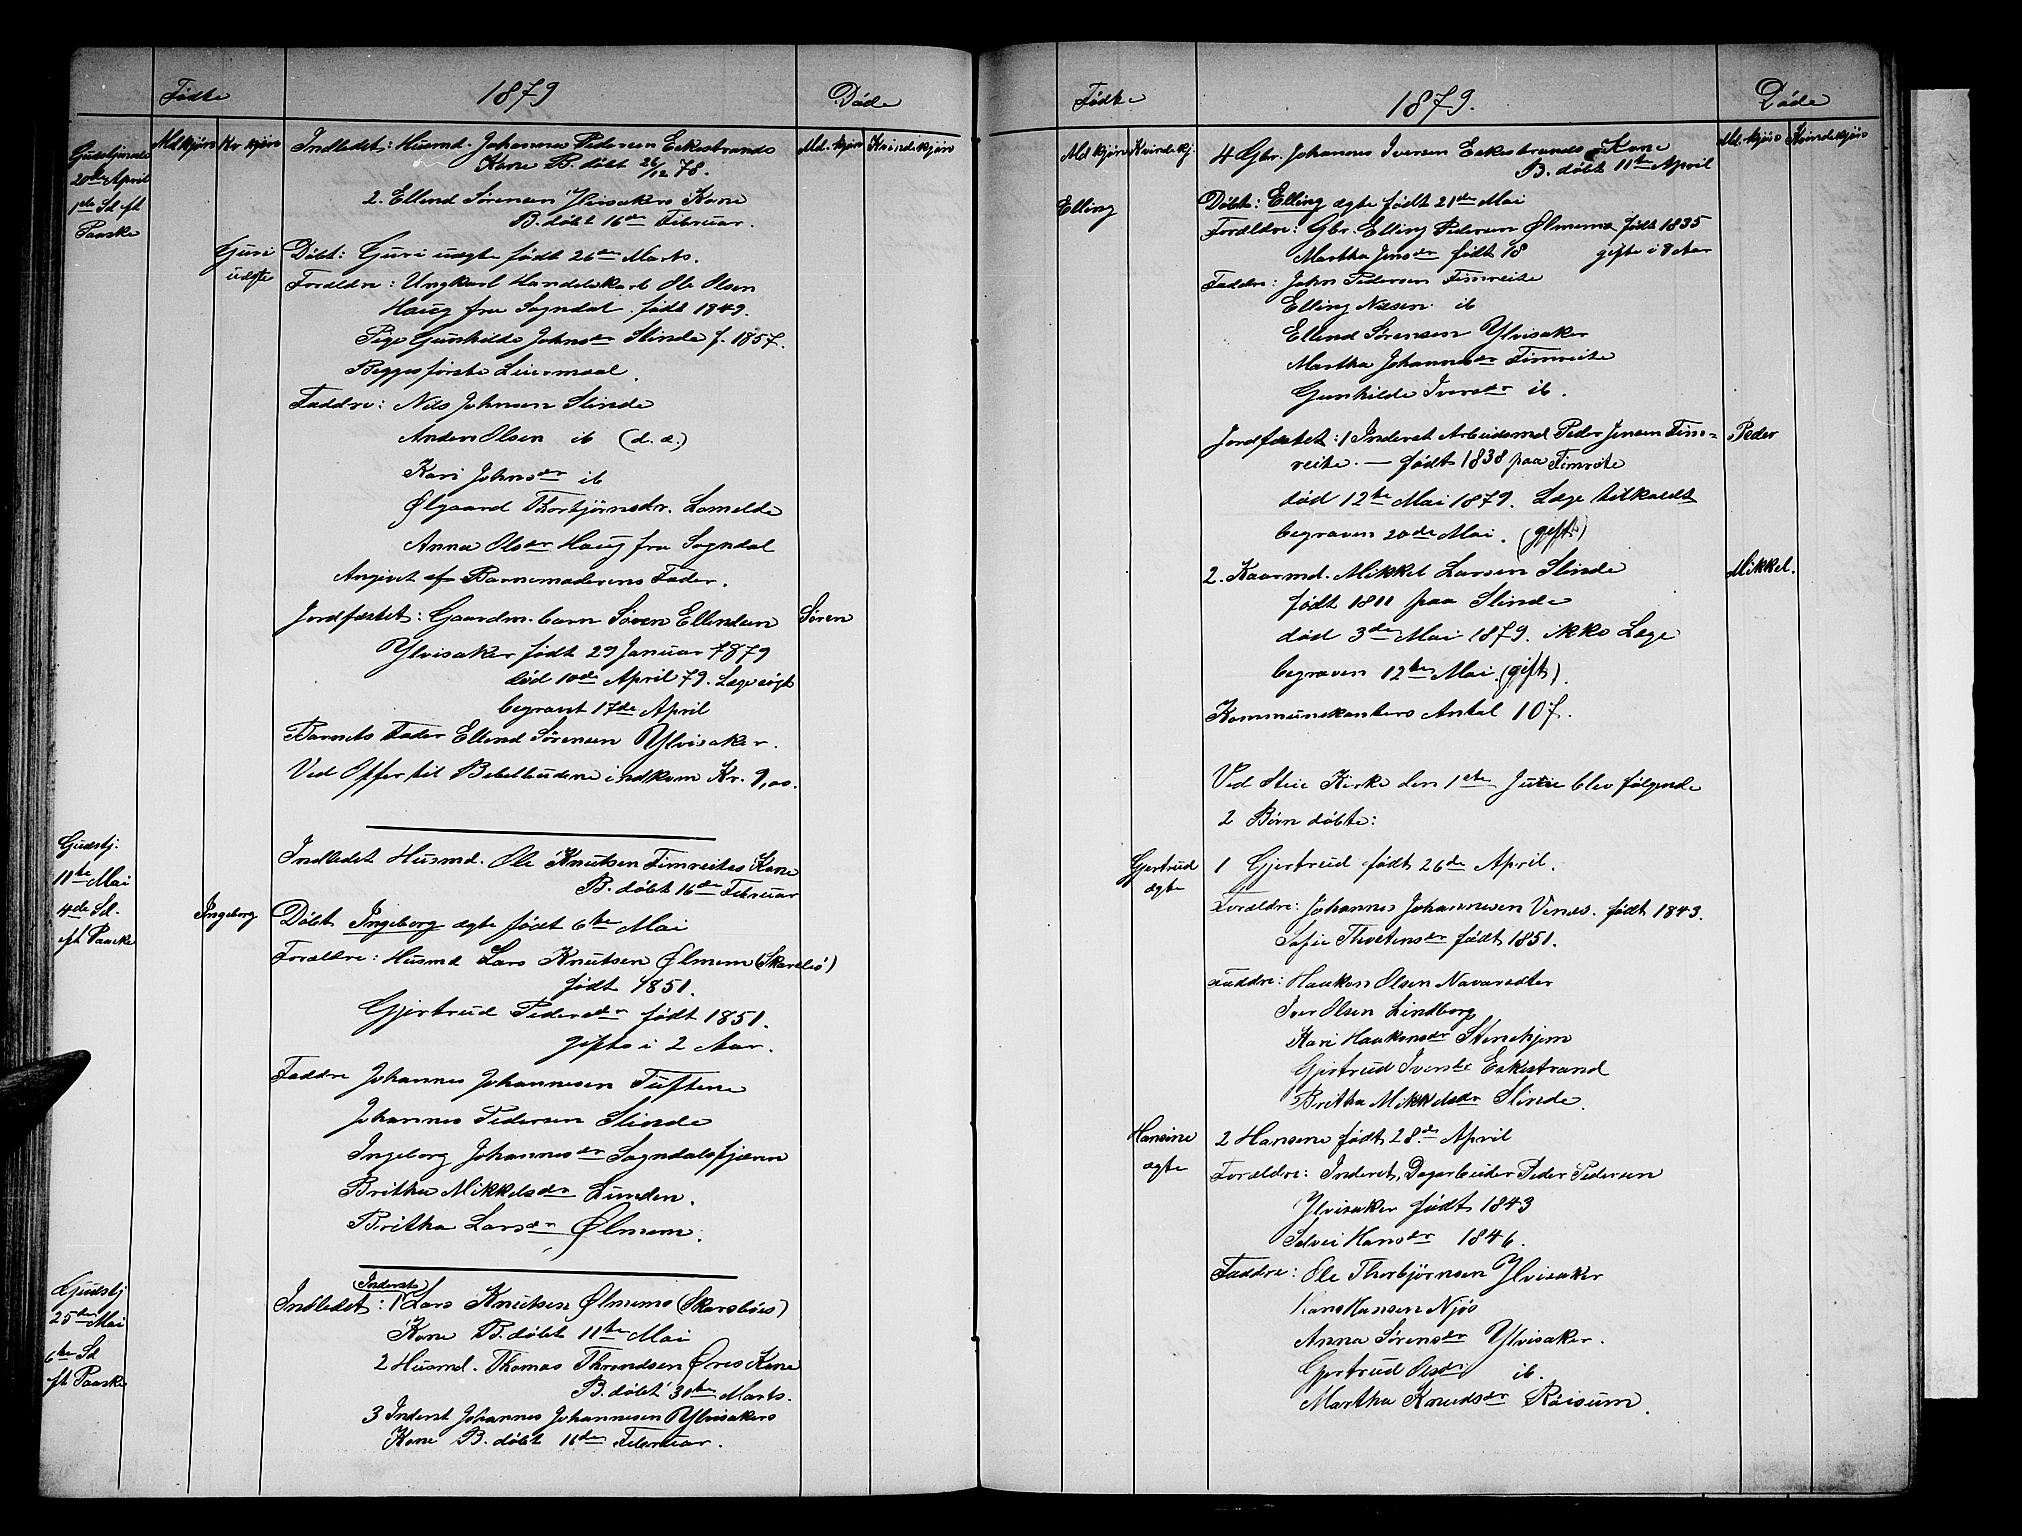 Fødte
1879
Døde
Gudstjeneste
20de April
1ste Sd eft
Paaske
Md kjøn
Kv kjøn
Md. kjøn
Kvindekjøn
Indledet: Husmd. Johannes Pedersen Eskestrands
Kone B. døbt 26/12 78.
2. Ellend Sørensen Ylvisakers Kone
B. døbt 16de Februar.
Guri
uægte
Døbt: Guri uægte født 26de Marts.
Forældre: Ungkarl Handelskarl Ole Olsen
Haug fra Sogndal født 1849.
Pige Gunhilde Johnsdr Slinde f. 1857.
Begges første Leiermaal.
Faddre: Nils Johnsen Slinde
Anders Olsen ib (d. æ.)
Kari Johnsdr ib
Ølgaard Thorbjørnsdr. Lomelde
Anna Olsdr Haug fra Sogndal
Angivet af Barnemoderens Fader.
Jordfæstet: Gaardm. barn Søren Ellendsen
Søren
Ylvisaker født 29 Januar 1879
død 10de April 79. Læge søgt
begravet 17de April
Barnets Fader Ellend Sørensen Ylvisaker.
Ved Offer til Bibelbudene indkom Kr. 9,00.
Gudstj.
11te Mai
4de Sd.
eft Paaske
Indledet Husmd. Ole Knutsen Fimreites Kone
B. døbt 16de Februar
Ingeborg
Døbt Ingeborg ægte født 6te Mai
Forældre: Husmd Lars Knutsen Ølmem (Skarsbø)
født 1851.
Gjertrud Pedersdr født 1851.
gifte i 2 Aar.
Faddre Johannes Johannesen Tuftene
Johannes Pedersen Slinde
Ingeborg Johannesdr Sogndalsfjæren
Britha Mikkelsdr Lunden.
Britha Larsdr Ølmem.
Gudstj
25de Mai
6te Sd
eft Paaske
(Inderst)
Indledet: 1 Lars Knutsen Ølmems (Skarsbøes)
Kone B. døbt 11te Mai
2 Husmd. Thomas Throndsen Øres Kone
B. døbt 30te Marts.
3 Inderst Johannes Johannesen Ylvisakers
Kone B. døbt 16de Februar.
Fødte
1879.
Døde
Md kjøn
Kvindekj.
Md. kjøn
Kvindekjøn
4 Gbr. Johannes Iversen Eskestrands Kone
B. døbt 11te April
Elling
Døbt: Elling ægte født 21de Mai
Forældre: Gbr. Elling Pedersen Ølmem født 1835
Martha Jensdr født 18 gifte i 8 Aar
Faddre: John Pedersen Fimreite
Elling Nilsen ib
Ellend Sørensen Ylvisaker
Martha Johannesdr Fimreite
Gunhilde Iversdr ib.
Jordfæstet: 1 Inderst Arbeidsmd Peder Jensen Fim=
Peder
reite. — født 1838 paa Fimreite
død 12te Mai 1879. Læge tilkaldt
begraven 20de Mai. (gift)
2. Kaarmd. Mikkel Larsen Slinde
Mikkel.
født 1811 paa Slinde
død 3de Mai 1879. ikke Læge
begraven 12te Mai. (gift).
Kommunikanters Antal 107.
Ved Steie Kirke den 1ste Juni blev følgende
2 Børn døbte:
Gjertrud
ægte
1 Gjertrud født 26de April.
Forældre: Johannes Johannesen Venes. født 1843.
Sofie Thostensdr født 1851.
Faddre: Haakon Olsen Navarsete
Iver Olsen Lindborg
Kari Haakensdr Stenehjem
Gjertrud Iversdr Eskestrand
Britha Mikkelsdr Slinde.
Hansine
ægte
2 Hansine født 28de April
Forældre: Inderst, Dagarbeider Peder Pedersen
Ylvisaker født 1843
Sølvei Hansdr 1846.
Faddre: Ole Thorbjørnsen Ylvisaker
Hans Hansen Njøs
Anna Sørensdr Ylvisaker.
Gjertrud Olsdr ib.
Martha Knudsdr Røisum.